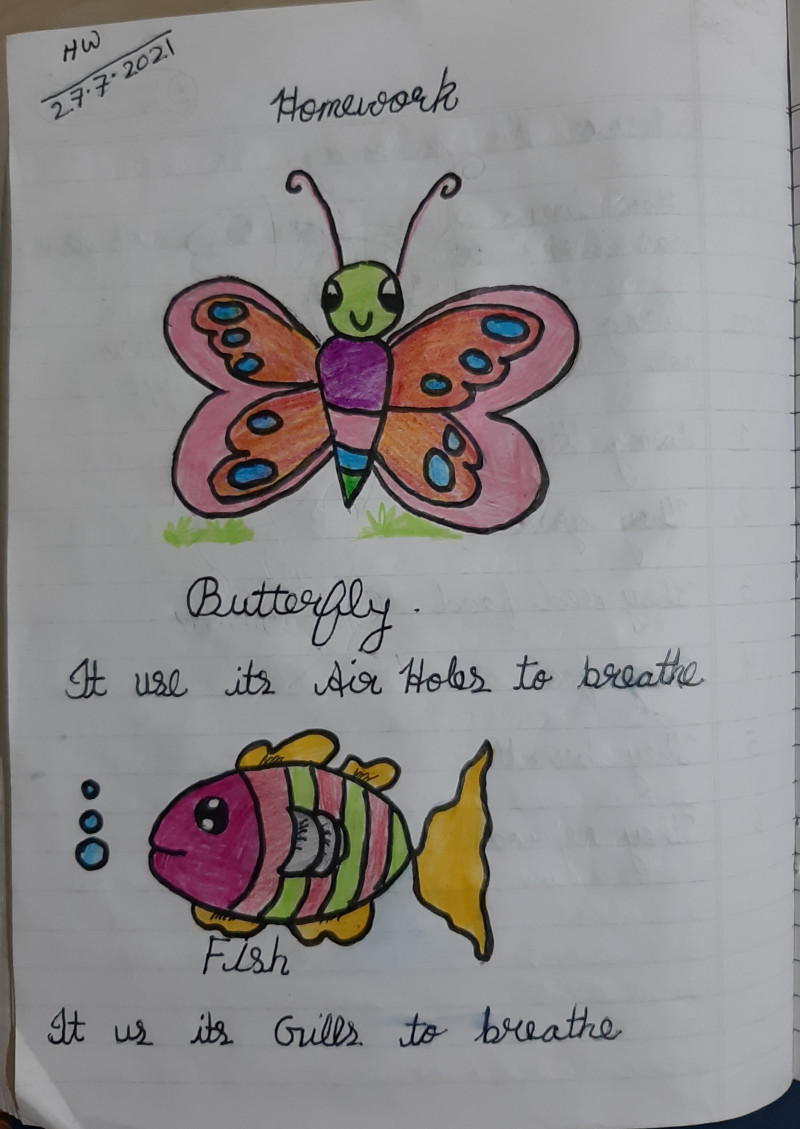 HW
27.7.2021
Homework
Butterfly.
It use its Air Holes to breathe
Fish
It us its Grills to breathe